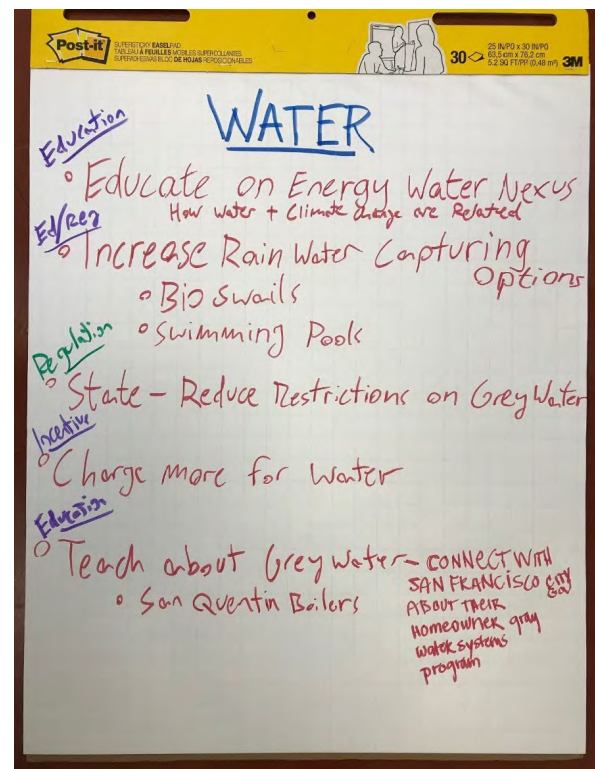 Post-it
SUPERSTICKY EASELPAD
TABLEAU À FEUILLES MOBILES SUPERCOLLANTES
SUPERADHESIVAS BLOC DE HOJAS REPOSICIONABLES
30
25 IN/PO x 30 IN/PO
63,5 cm x 76,2 cm
5.2 SQ FT/PP² (0,48 m²)
3M
WATER
Education
Educate on Energy Water Nexus
How water + Climate change are Related
Ed/Reg
Increase Rain Water Capturing
Options
Bio Swails
Swimming Pools
Regulation
State - Reduce Restrictions on Grey Water
Incentive
Charge more for water
Education
Teach about Grey water - CONNECT WITH
SAN FRANCISCO CITY
& CO
ABOUT THEIR
San Quentin Boilers
HOMEOWNER gray
water systems
program